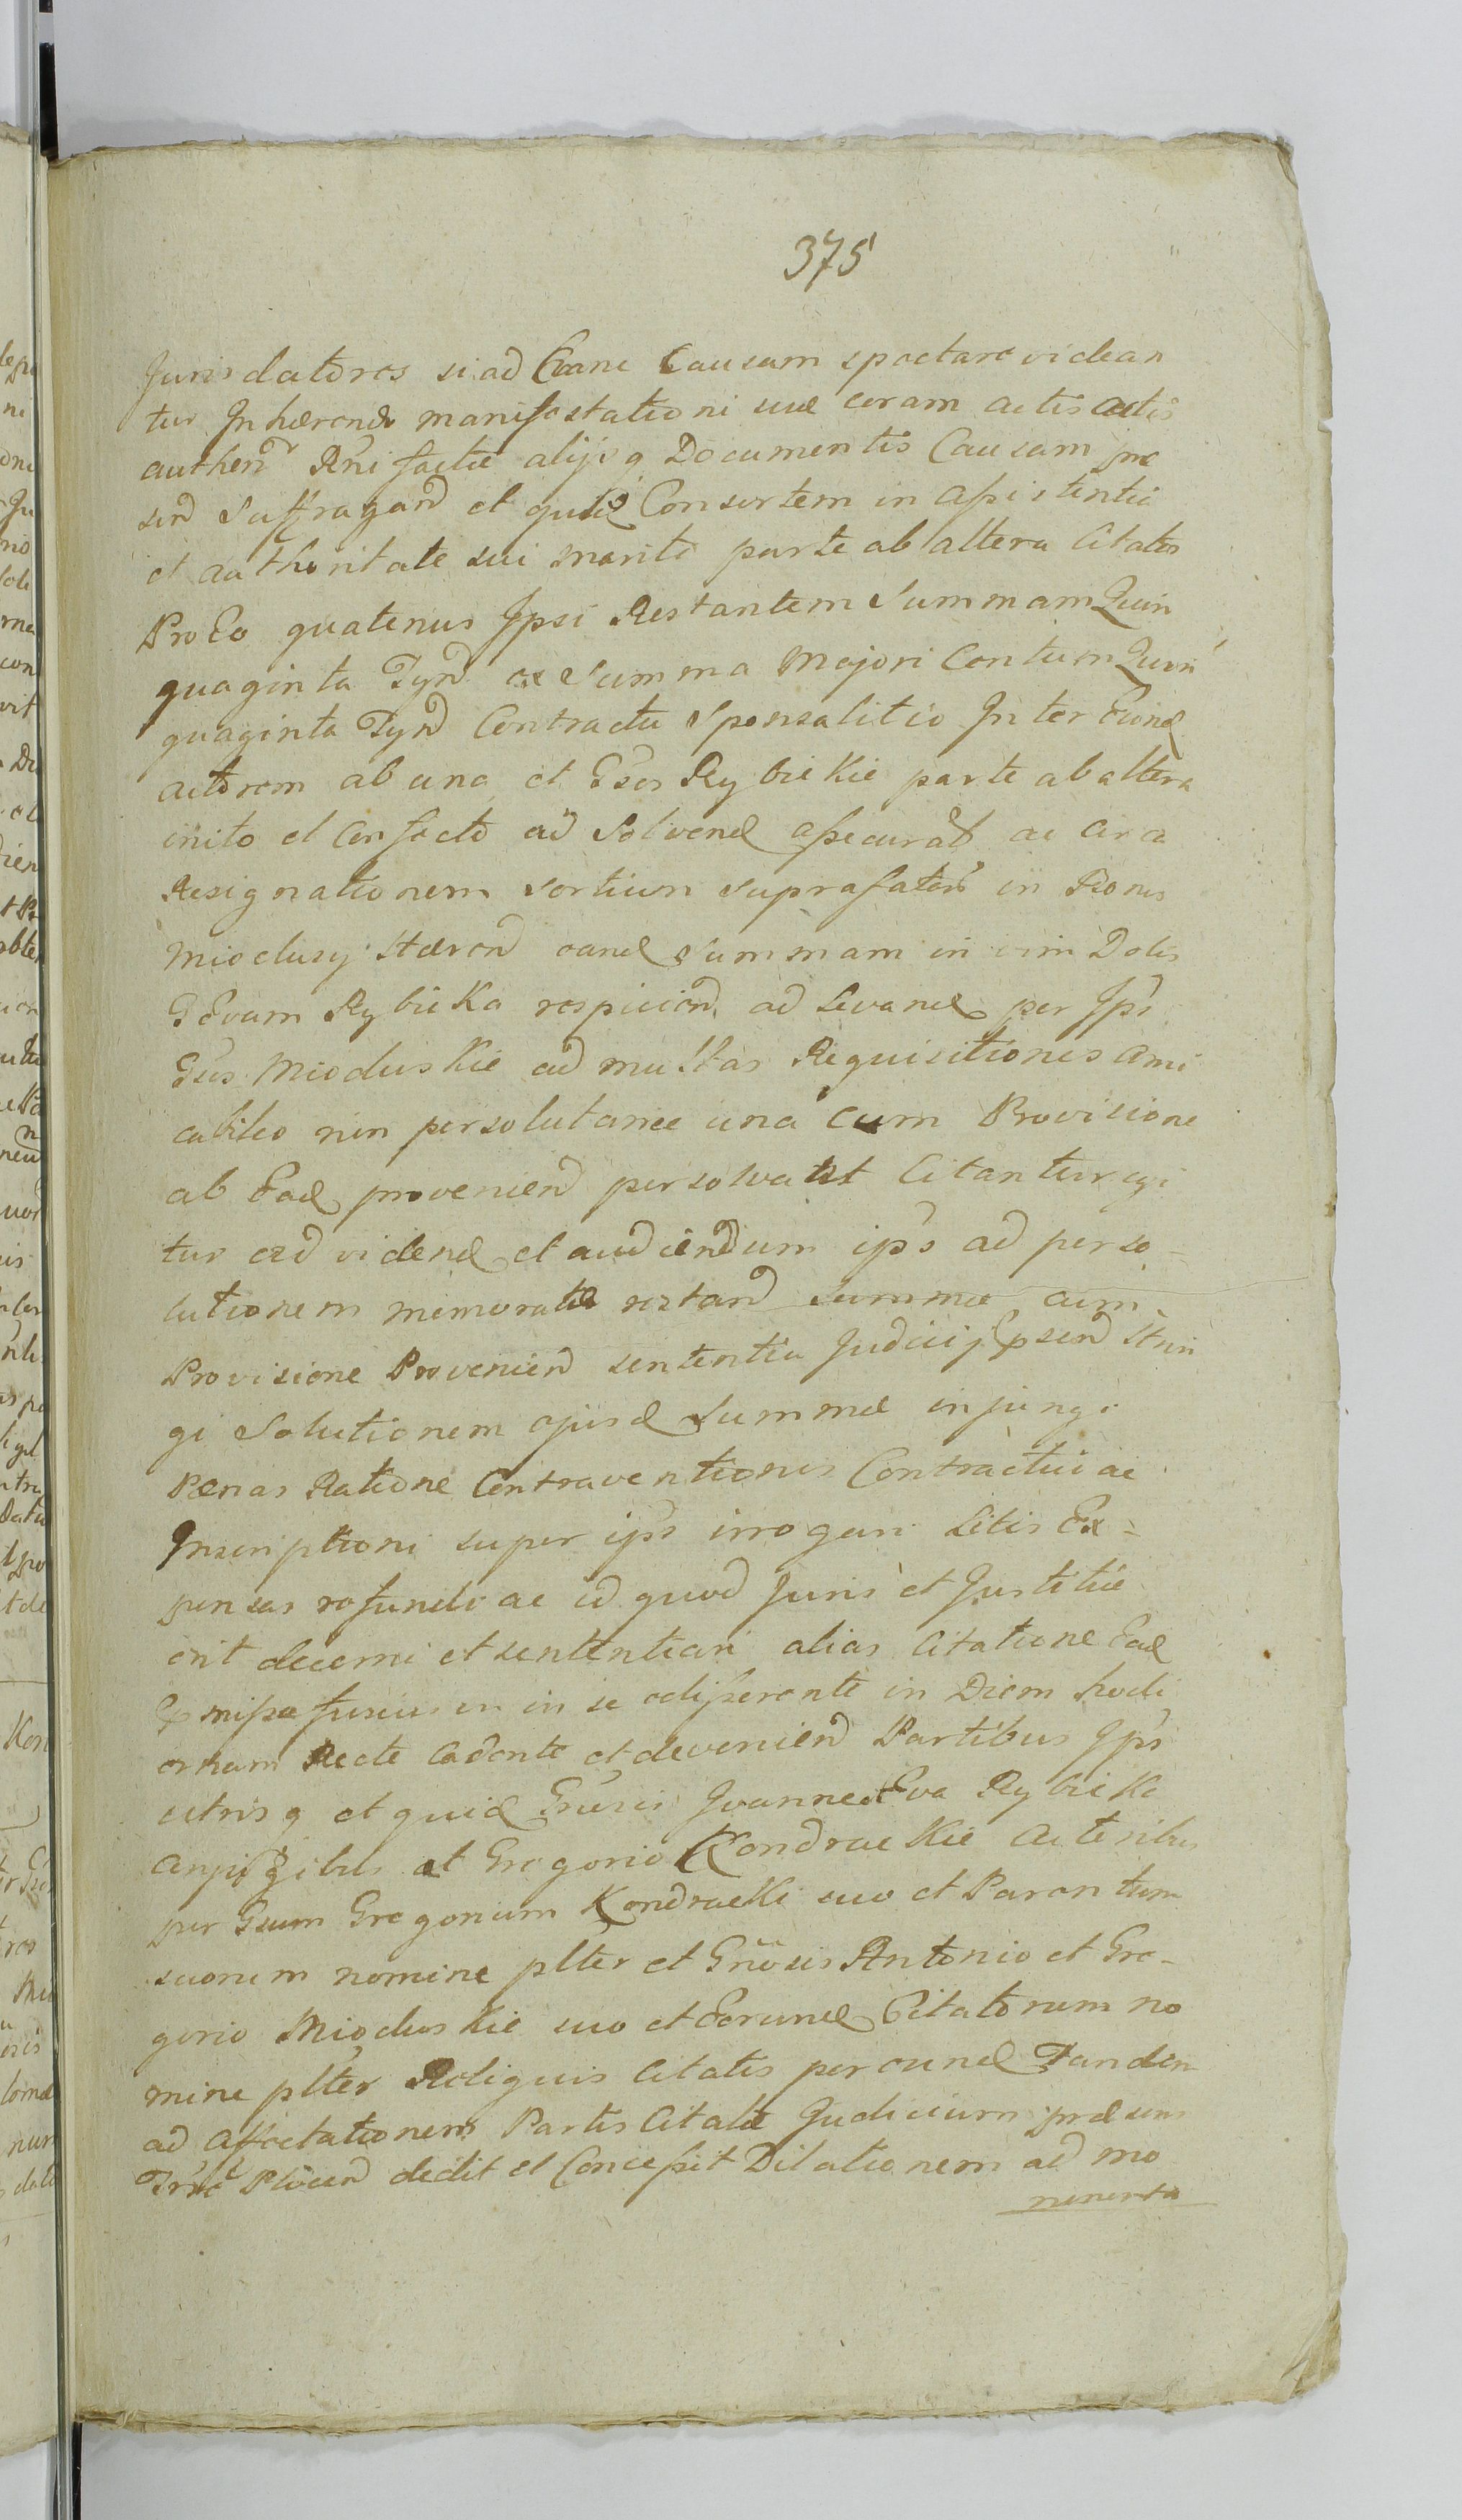 375
Jurisdatores si ad Eanc Causam spectare videan
tur Inhærend manifestationi suæ coram actis actis
authen Rni factæ alijsq Documentis Causam præ
send Suffragand et qusd Consortem in assistentia
et authoritate sui mariti parte ab altera Citatos
Pro Eo quatenus Ipsi Restantem Summam Quin
quaginta Tynd ex Summa Majori Centum Quin
quaginta Tynd Contractu Sponsalitio Inter Eund
actorem ab una et Gsos Rybickie parte ab altera
inito et Confecto ad Solvend assecurat ac circa
Resignationem sortium suprafator in Bonis
Miodusy Stæron eand Summam in vim Dotis
G Evam Rybicka respiciend ad Levand per Ips
Gsos Mioduskie ad multas Requisitiones ami
cabiles non persolutam una cum Provisione
ab Ead proveniend persolvant Citantur igi
tur ad vidend et audiendum ips ad perso
lutionem memoratæ restand Summæ cum
Provisione Proveniend sententia Judicij Epsend Strin
gi Solutionem ejusd Summæ injungi
Pænas Ratione Contraventionis Contractui ac
Inscriptioni super ips irrogari Litis Ex=
pensas refundi ac id quod Juris et Justitiæ
erit decerni et sententiari alias Citatione Ead
Exmissa fusius in se adisserente in Diem hodi
ernam Recte Cadente et deveniend Partibus Ips
utrisq et quid Gnosis Joanne et Eva Rybickie
Conjugibus et Gregorio Kondrackie Actoribus
per Gsum Gregorium Kondracki suo et Parentum
suorum nomine plter et Gnosis Antonio et Gre-
gorio Mioduskie suo et Eorund Citatorum no
mine plter Reliquis Citatis per eund Tandem
ad Affectationem Partis Citatæ Judicium præsens
dedit et Concessit Dilationem ad mo
numenta